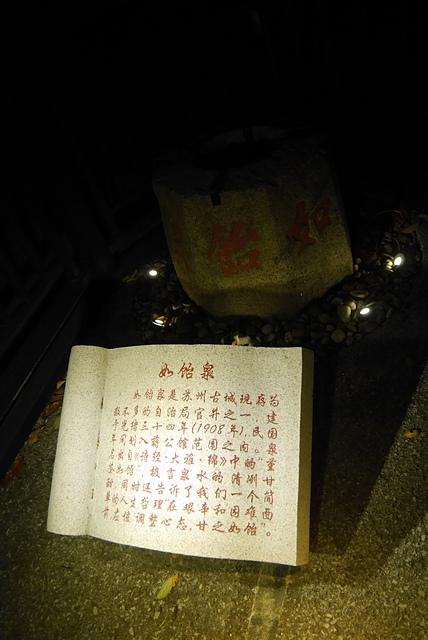 如饴
如饴泉
如饴泉是苏州古城现存为
数不多的自治局官井之一，建
于光绪三十四年(1908年)，民国
年间划入蒋公馆范围之内。泉
名出自《诗经·大雅·绵》中的“堇
荼如饴”，极言泉水的清冽甘
甜，同时还告诉了我们一个简
单的人生哲理“在艰辛和困难面
前应懂调整心态，甘之如饴”。